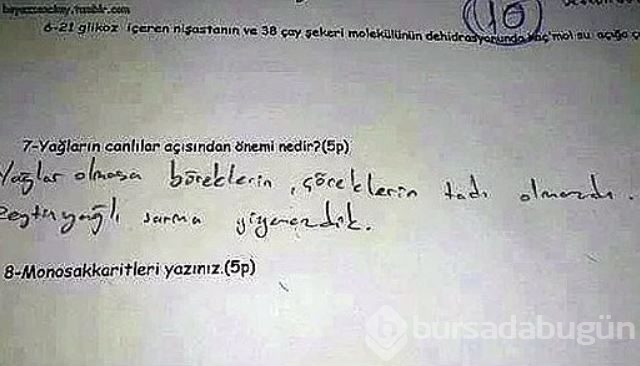 10
6-21 glikoz içeren nişastanın ve 38 çay şekeri molekülünün dehidrasyonunda kaç mol su açığa
7-Yağların canlılar açısından önemi nedir?(5p)
Yağlar olmasa böreklerin, çöreklerin tadı olmazdı.
Zeytinyağlı sarma yiyemezdik.
8-Monosakkaritleri yazınız.(5p)
b bursadabugün